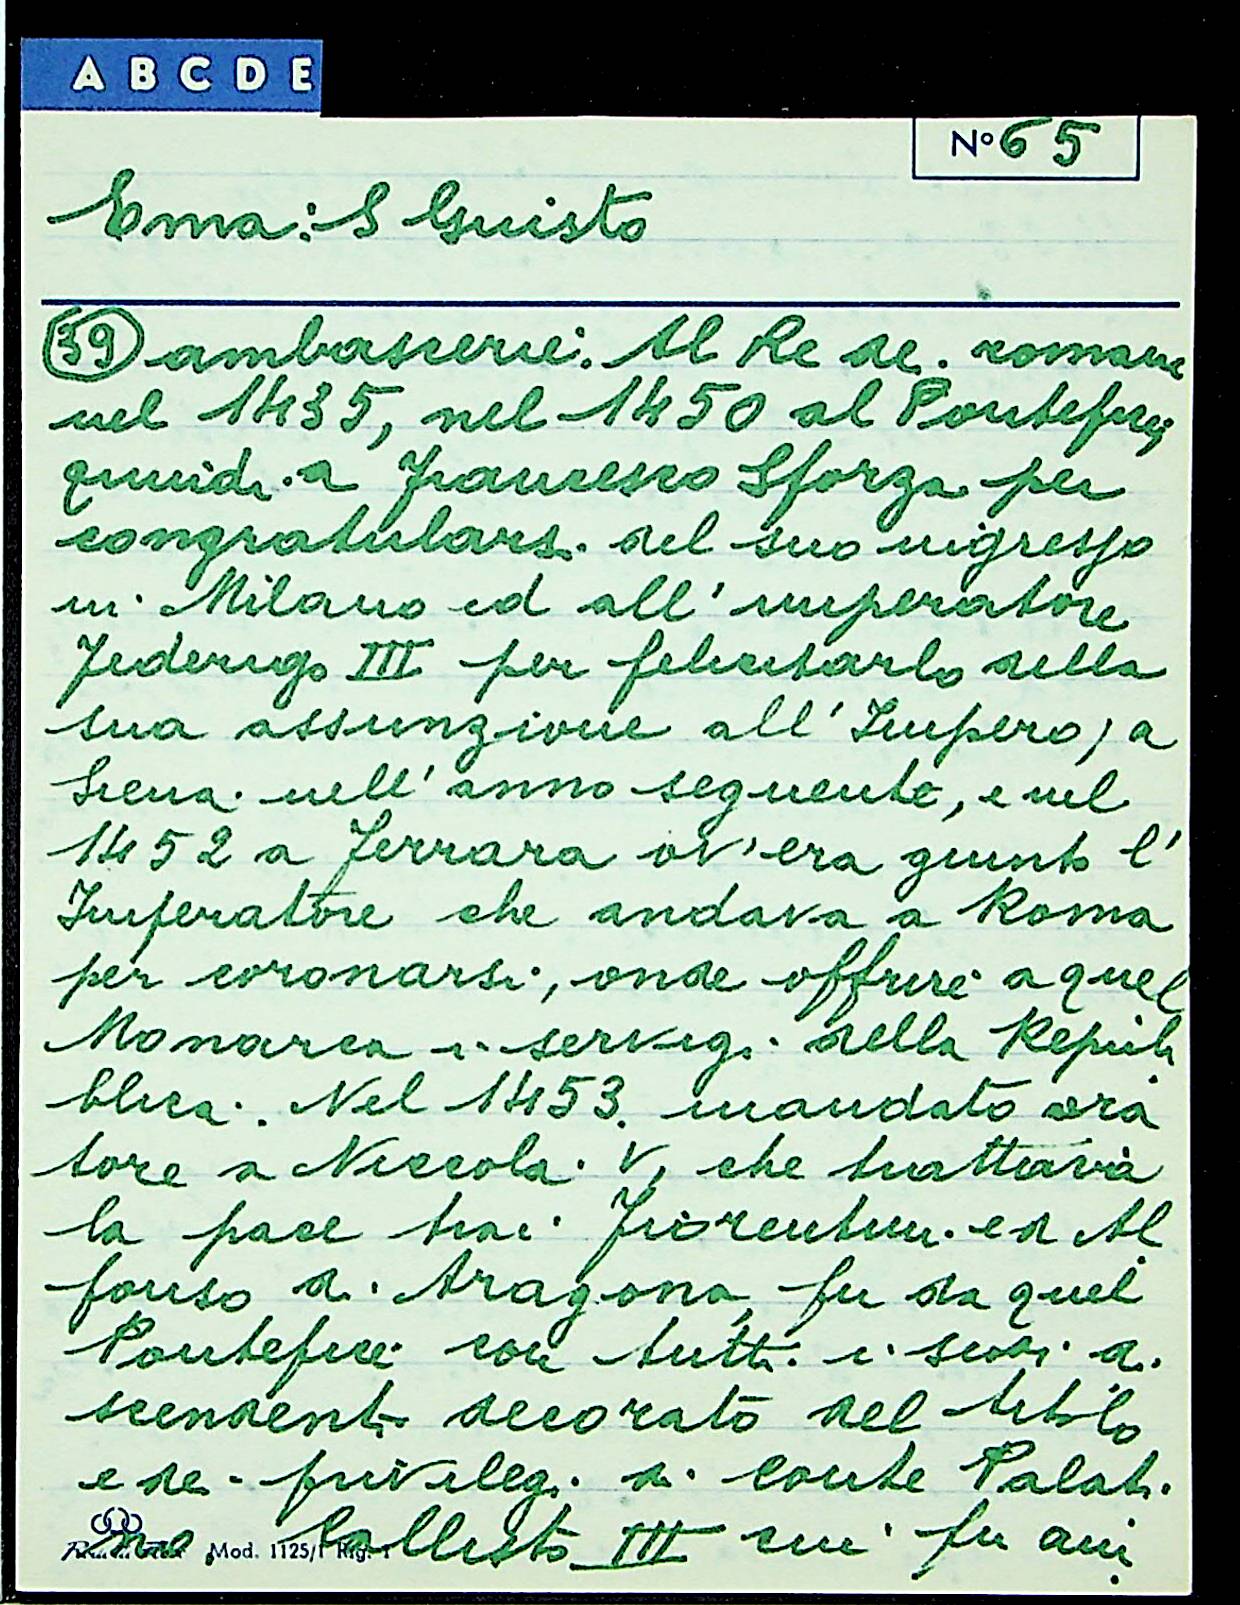 A B C D E
Nº 65
Ema: S Giusto
39 ambascerie. Al Re dei romani
nel 1435, nel 1450 al Pontefice,
quindi a Francesco Sforza per
congratularsi del suo ingresso
in Milano ed all'imperatore
Federigo III per felicitarlo della
sua assunzione all'Impero, a
Siena nell'anno seguente, e nel
1452 a Ferrara ov'era giunto l'
Imperatore che andava a Roma
per coronarsi, onde offrire a quel
Monarca i servigi della Repub
blica. Nel 1453 mandato ora
tore a Niccola V, che trattava
la pace trai Fiorentini ed Al
fonso di Aragona, fu da quel
Pontefice con tutti i suoi di
scendenti decorato del titolo
e dei privilegi di conte Palati
no. Callisto III cui fu in
Mod. 1125/1 Rig. 1